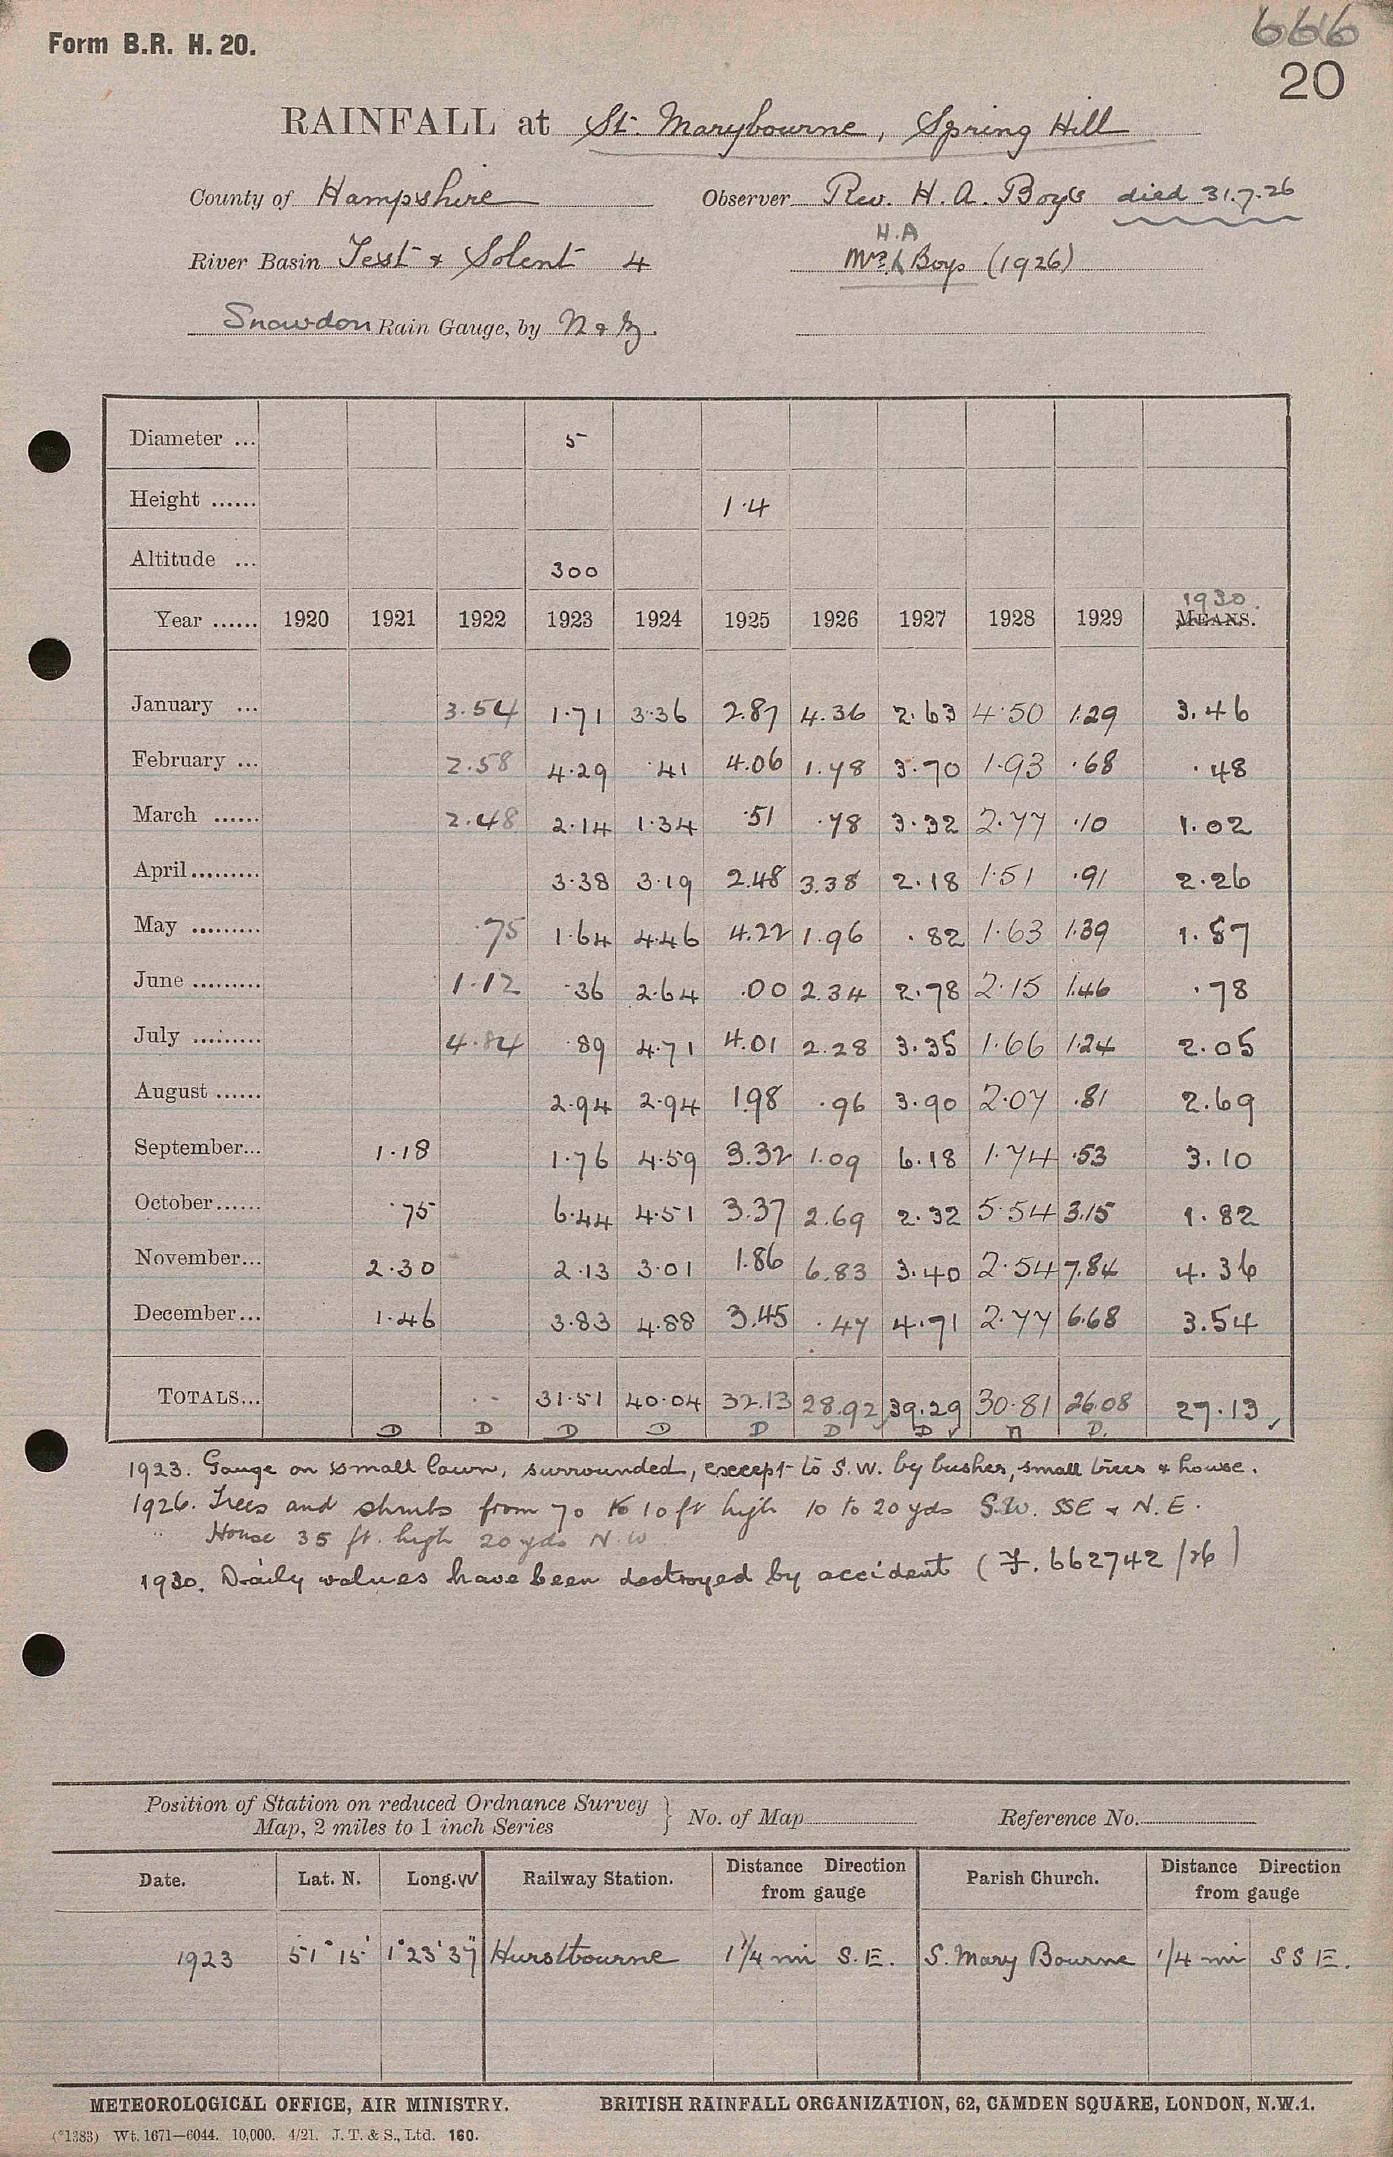 Form B.R. H. 20.
666
20
RAINFALL at St. Marybourne, Spring Hill
County of Hampshire Observer Rev. H. A. Boys died 31.7.26
H.A
River Basin Test & Solent 4 Mrs. Boys (1926)
Snowdon Rain Gauge, by N & Z.
Diameter ... 5
Height ...... 1.4
Altitude ... 300
1930.
Year ...... 1920 1921 1922 1923 1924 1925 1926 1927 1928 1929 MEANS.
January ... 3.54 1.71 3.36 2.87 4.36 2.63 4.50 1.29 3.46
February ... 2.58 4.29 .41 4.06 1.78 3.70 1.93 .68 .48
March ...... 2.48 2.14 1.34 .51 .78 3.32 2.77 .10 1.02
April......... 3.38 3.19 2.48 3.38 2.18 1.51 .91 2.26
May ......... .75 1.64 4.46 4.22 1.96 .82 1.63 1.39 1.57
June ......... 1.12 .36 2.64 .00 2.34 2.78 2.15 1.46 .78
July ......... 4.84 .89 4.71 4.01 2.28 3.35 1.66 1.24 2.05
August ...... 2.94 2.94 1.98 .96 3.90 2.07 .81 2.69
September... 1.18 1.76 4.59 3.32 1.09 6.18 1.74 .53 3.10
October...... .75 6.44 4.51 3.37 2.69 2.32 5.54 3.15 1.82
November... 2.30 2.13 3.01 1.86 6.83 3.40 2.54 7.84 4.36
December... 1.46 3.83 4.88 3.45 .47 4.71 2.77 6.68 3.54
TOTALS... - 31.51 40.04 32.13 28.92 39.29 30.81 26.08 27.13
D D D D D D D D D.
1923. Gauge on small lawn, surrounded, except to S.W. by bushes, small trees & house.
1926. Trees and shrubs from 70 to 10 ft high 10 to 20 yds S.W. SSE & N.E.
" House 35 ft. high 20 yds N.W
1930. Daily values have been destroyed by accident (F. 662742/26)
Position of Station on reduced Ordnance Survey
Map, 2 miles to 1 inch Series } No. of Map Reference No.
Date. Lat. N. Long. W Railway Station. Distance Direction from gauge Parish Church. Distance Direction from gauge
1923 51° 15' 1° 23' 37" Hurstbourne 1 1/4 mi S.E. S. Mary Bourne 1/4 mi S S E.
METEOROLOGICAL OFFICE, AIR MINISTRY. BRITISH RAINFALL ORGANIZATION, 62, CAMDEN SQUARE, LONDON, N.W.1.
(*1383) Wt. 1671—6044. 10,000. 4/21. J. T. & S., Ltd. 160.